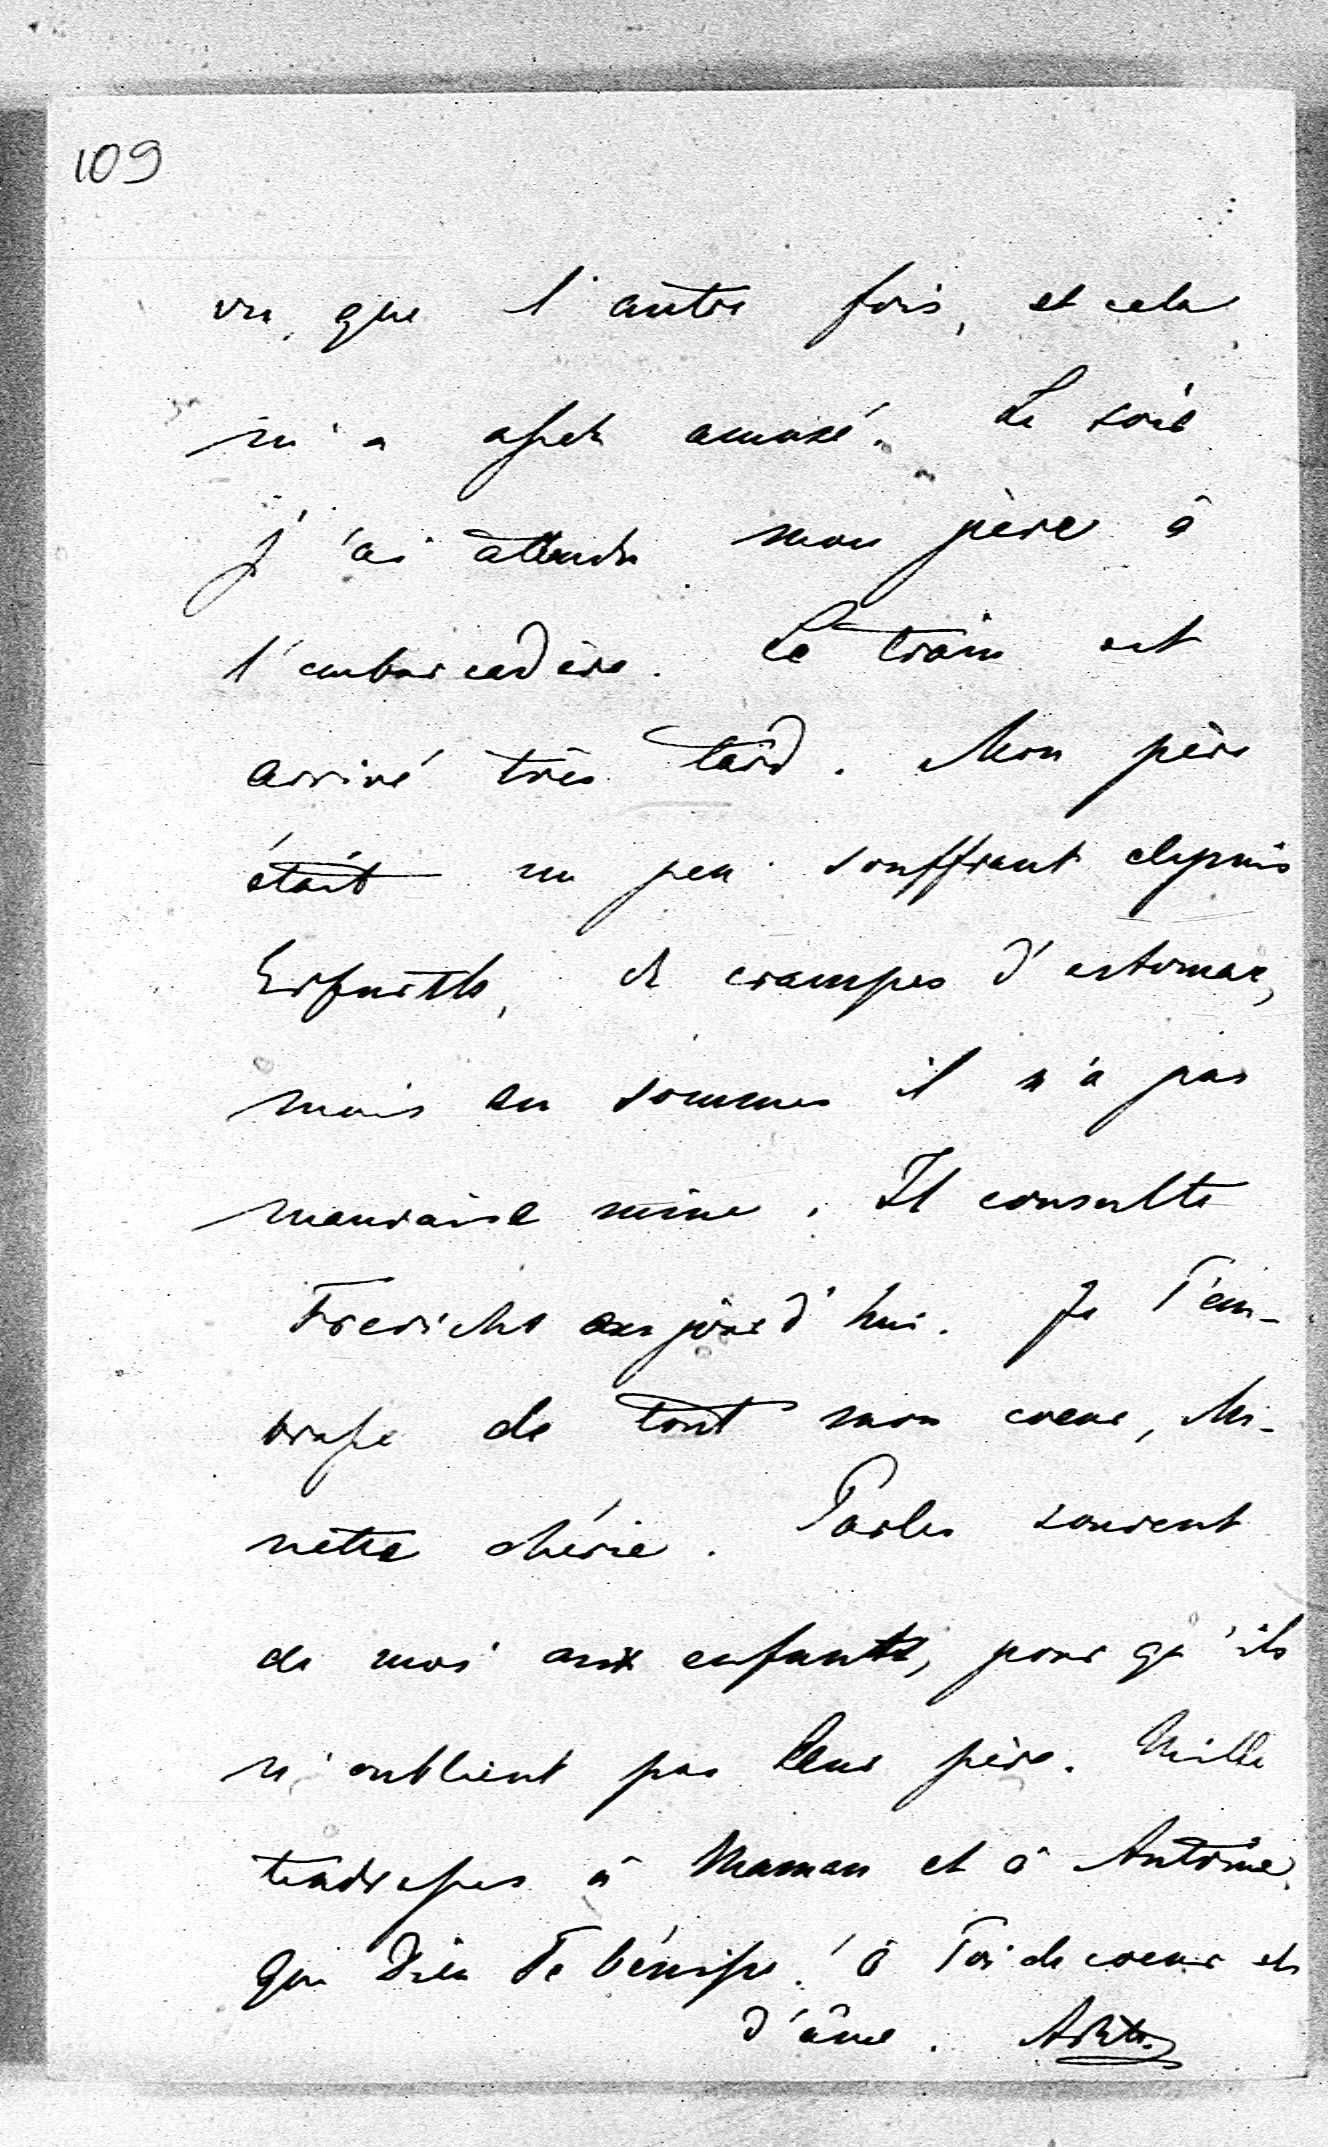 109
vu, que l'autre fois, et cela
m'a assez amusé. Le soir
j'ai attendu mon père à
l'embarcadère. Le train est
arrivé très tard. Mon père
était un peu souffrant depuis
Erfurth, de crampes d'estomac,
mais en sommes il n'a pas
mauvaise mine. Il consulte
Frerichs aujourd'hui. Je T'em-
brasse de tout mon coeur, Mi-
nette chérie. Parles souvent
de moi aux enfants, pour qu'ils
n'oublient pas leur père. Mille
tendresses à Maman et à Antoine.
Que Dieu Te bénisse! à Toi de coeur et
d'âme.